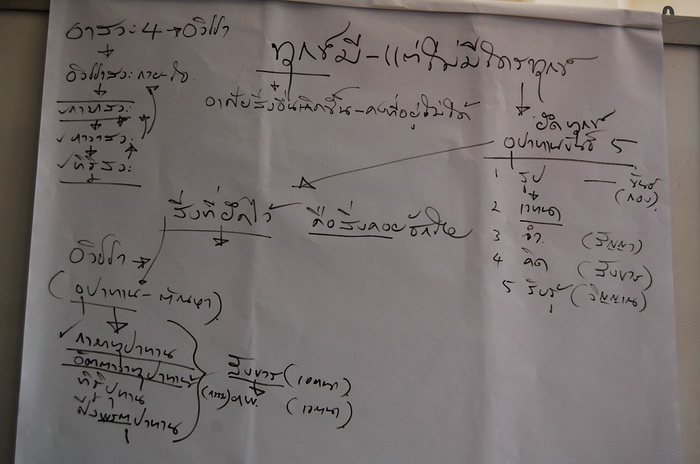 อาสวะ 4 → อวิชชา
ทุกข์มี - แต่ไม่มีใครทุกข์
อวิชชาสวะ กาย-ใจ
กามาสวะ
ภวาสวะ
ทิฐิสวะ
อาศัยสิ่งอื่นเกิดขึ้น - คงที่อยู่ไม่ได้
ยึดทุกข์
อุปาทานขันธ์ 5
1 รูป — ขันธ์ (กอง)
2 เวทนา
3 จำ (สัญญา)
4 คิด (สังขาร)
5 รับรู้ (วิญญาณ)
สิ่งที่ยึดไว้ คือสิ่งคอยชักใย
อวิชชา →
(อุปาทาน - ตัณหา)
กามุปาทาน
อัตตวาทุปาทาน
ทิฐิปาทาน
ปาทาน
สังขาร (เจตนา)
(กรรม)
(เวทนา)